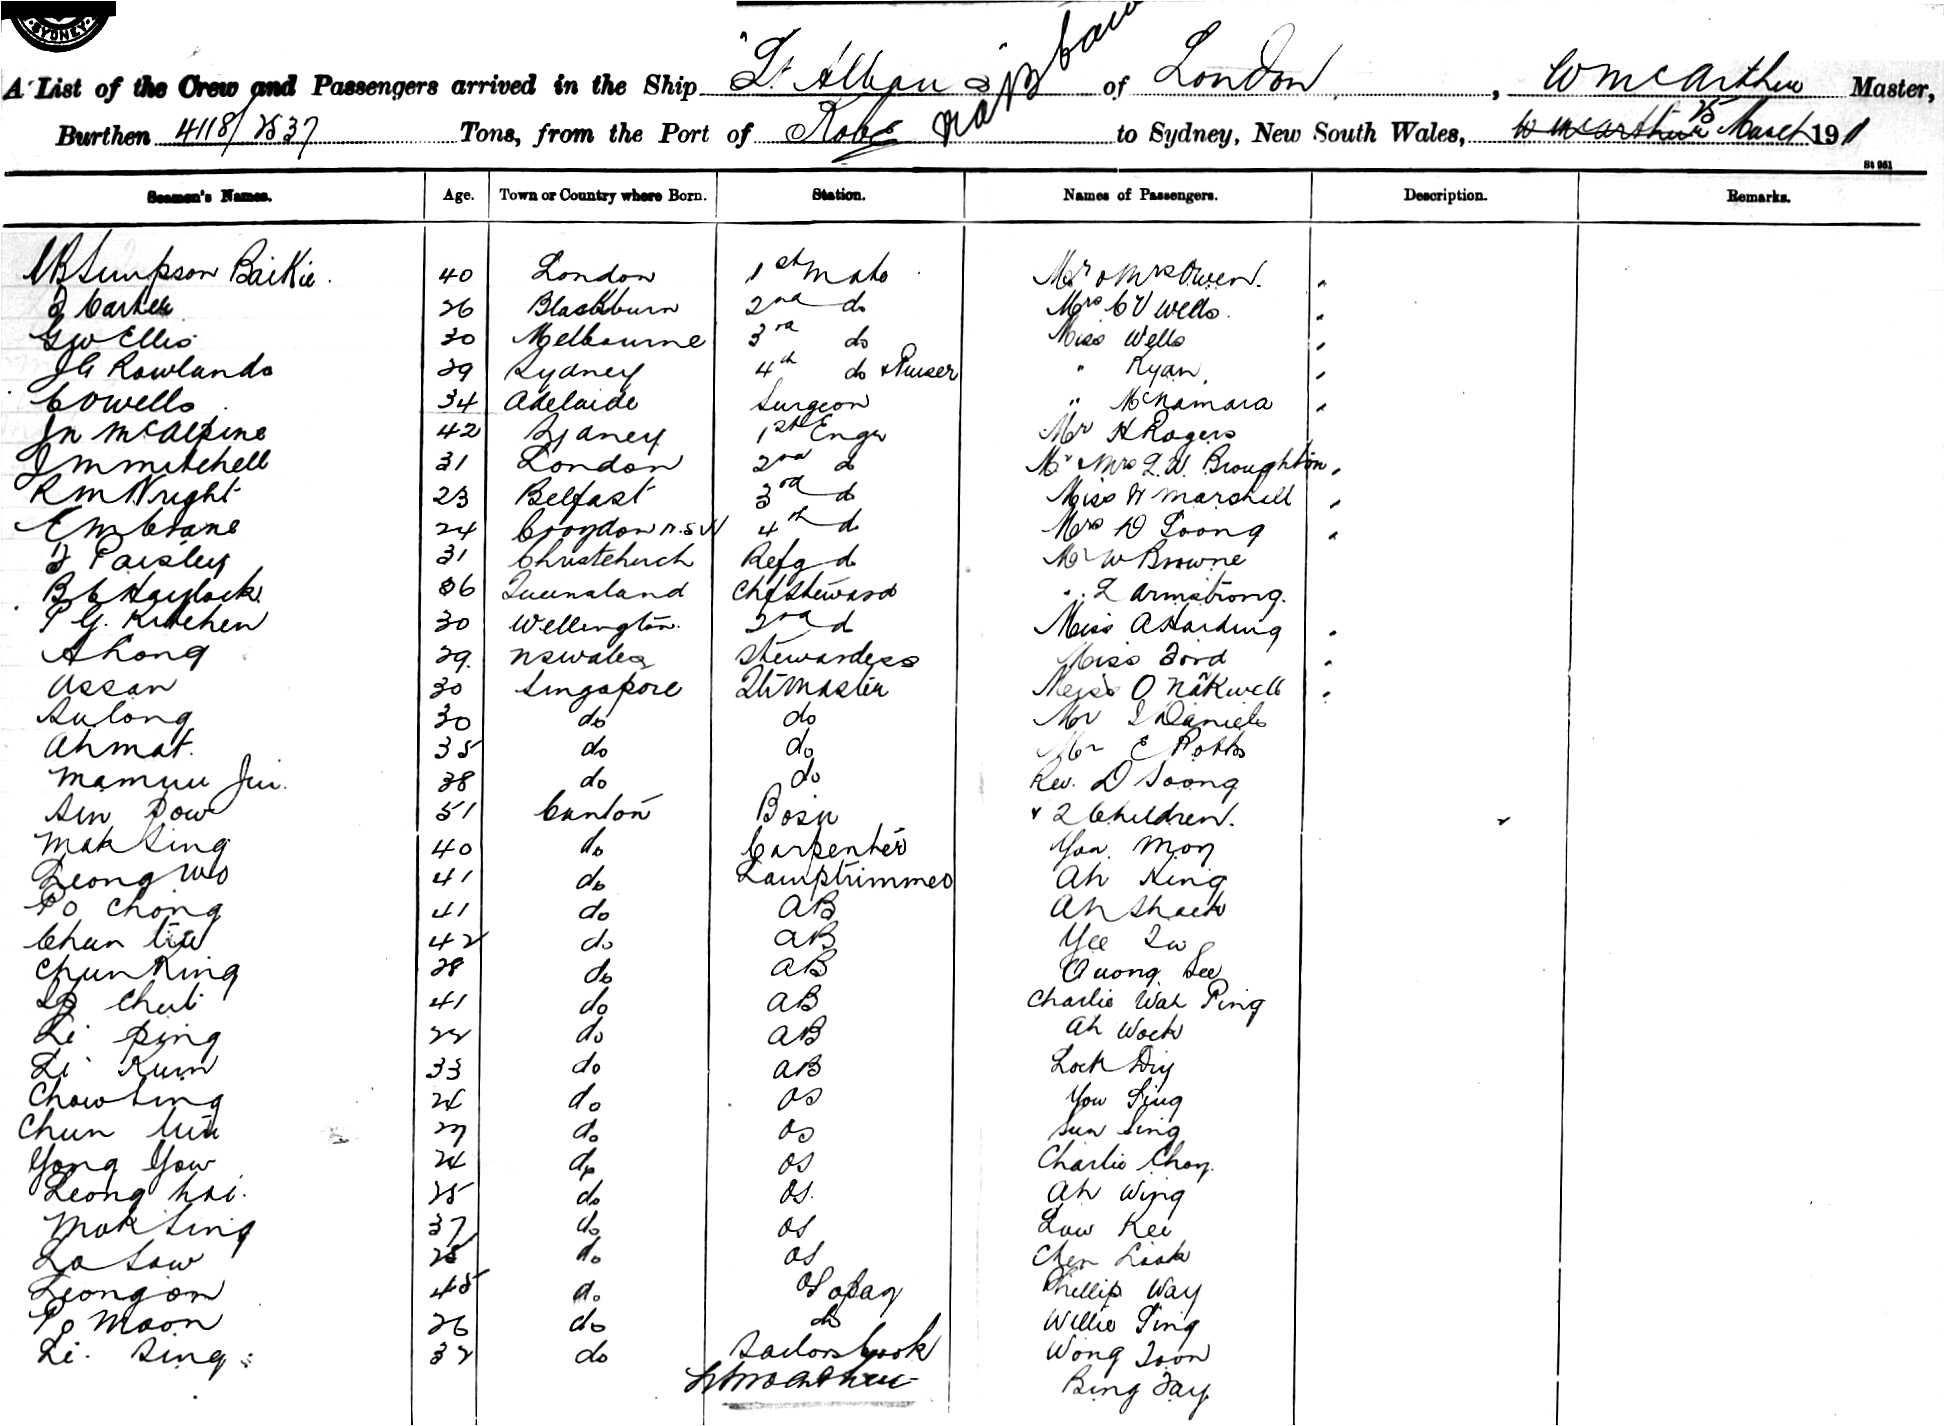 SYDNEY
A List of the Crew and Passengers arrived in the Ship "St Albans" of London, W McArthur Master,
Burthen 4118/2537 Tons, from the Port of Kobe to Sydney, New South Wales, W McArthur 25 March 191
St 961
Seamen's Names. Age. Town or Country where Born. Station. Names of Passengers. Description. Remarks.
Simpson Baikie 40 London 1st Mate Mr & Mrs Owen.
Carter 26 Blackburn 2nd do Mrs C V Wells.
G W Ellis 30 Melbourne 3rd do Miss Wells
J G Rowlands 29 Sydney 4th do & Purser " Ryan
C O Wells 34 Adelaide Surgeon " McNamara
Jn McAlpine 42 Sydney 1st Engr Mr H Rogers
J M Mitchell 31 London 2nd d Mr & Mrs Broughton
R M Wright 23 Belfast 3rd d Miss Marshall
E M Crane 24 Croydon N.S.W 4th d Mrs D Soong
Paisley 31 Christchurch Refg d Mr W Browne
B C Haylock 36 Queensland Chf Steward " L Armstrong.
P G. Kitchen 30 Wellington. 2nd d Miss A Harding
A hong 29. N S Wales Stewardess Miss Ford
Assan 30 Singapore Qtr Master Miss
Sulong 30 do do Mr Daniels
Ahmat. 35 do do Mr E Potts
Mamun Jin. 38 do do Rev. D Soong
Sin Pow 51 Canton Bosn & 2 Children.
Mak Sing 40 do Carpenter Yan Moy
Leong Wo 41 do Lamptrimmer Ah King
Po Chong 41 do AB Ah Shack
Chun 42 do AB Yee
Chun King 28 do AB Quong Lee
Chut 41 do AB Charlie Wah Ping
Li Ping 22 do AB Ah Wock
Li Kum 33 do AB Lock
Chow Sing 24 do OS You Sing
Chun 27 do OS Sun Sing
Yong Yow 24 do OS Charlie Choy.
Leong Kai. 25 do OS. Ah Wing
Mok Sing 37 do OS Low Kee
Lo Sow 25 do OS Chen Look
Leong on 45 do OS Phillip Way
Po Moon 26 do do Willie Sing
Li Sing 32 do Sailors Cook Wong Toon
W McArthur Bing Fay